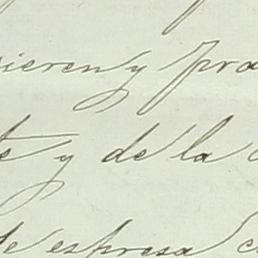 ieren y pro
te y de la
de espresa